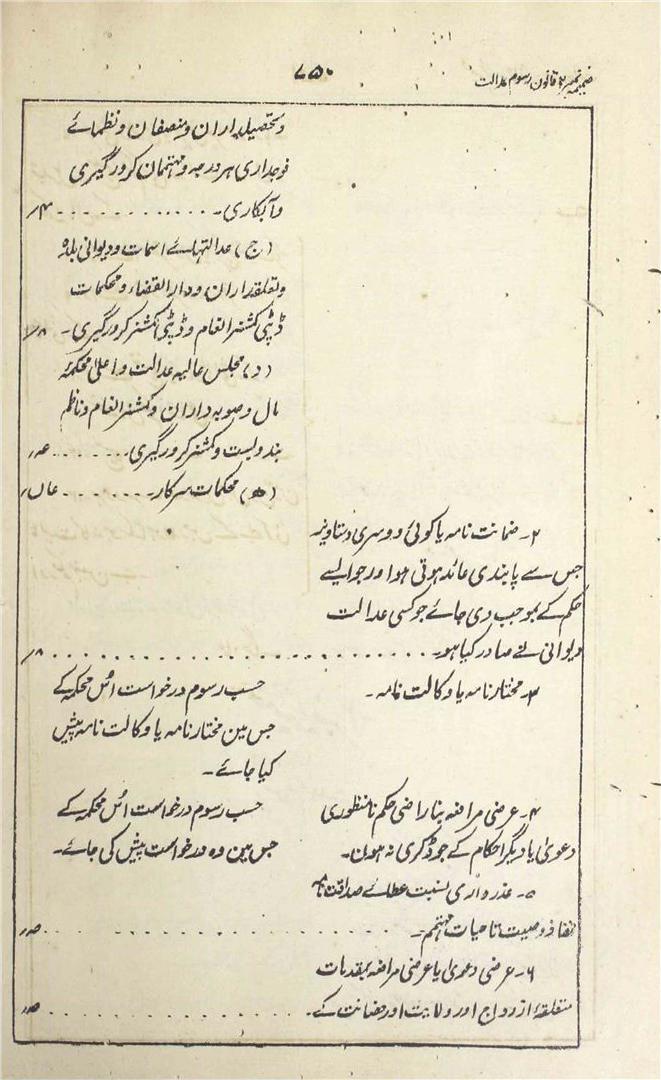 ضمیمہ نمبر ۲ قانون رسوم عدالت
۷۵۰
و تحصیلداران و منصفان و نظمائے
فوجداری ہر درجہ و مہتمان کروڑگیری
و آبکاری۔ . . . . . . . . . . ۴؍
(ج) عدالتہائے اسمات و دیوانی بلدہ
و تعلقداران و دار القضاء و محکمات
ڈپٹی کمشنر انعام و ڈپٹی کمشنر کروڑگیری۔ ۸؍
(د) مجلس عالیہ عدالت و اعلیٰ محکمۂ
مال و صوبہ داران و کمشنر انعام و ناظم
بندوبست و کمشنر کروڑگیری . . . . . . عہ؍
(ھ) محکمات سرکار۔ . . . . . . . عاں؍
۲۔ ضمانت نامہ یا کوئی دوسری دستاویز
جس سے پابندی عائد ہوتی ہو اور جو ایسے
حکم کے بموجب دی جائے جو کسی عدالت
دیوانی نے صادر کیا ہو۔ . . . . . . . . . . . . . . . . . . . ۸؍
۳۔ مختار نامہ یا وکالت نامہ۔
حسب رسوم درخواست اُس محکمہ کے
جس مین مختار نامہ یا وکالت نامہ پیش
کیا جائے۔
۴۔ عرضی مرافعہ بناراضی حکم نامنظوری
دعویٰ یا دیگر احکام کے جو ڈکری نہ ہون۔
حسب رسوم درخواست اُس محکمہ کے
جس مین وہ درخواست پیش کی جائے۔
۵۔ عذرداری نسبت عطائے صداقت نامہ
نفاذ وصیت تا حیات مہتمم۔ . . . . . . . . . . . . . صہ؍
۶۔ عرضی دعویٰ یا عرضی مرافعہ بمقدمات
متعلقۂ ازدواج اور ولایت اور حضانت کے۔ . . . . . . . . . . . صہ؍